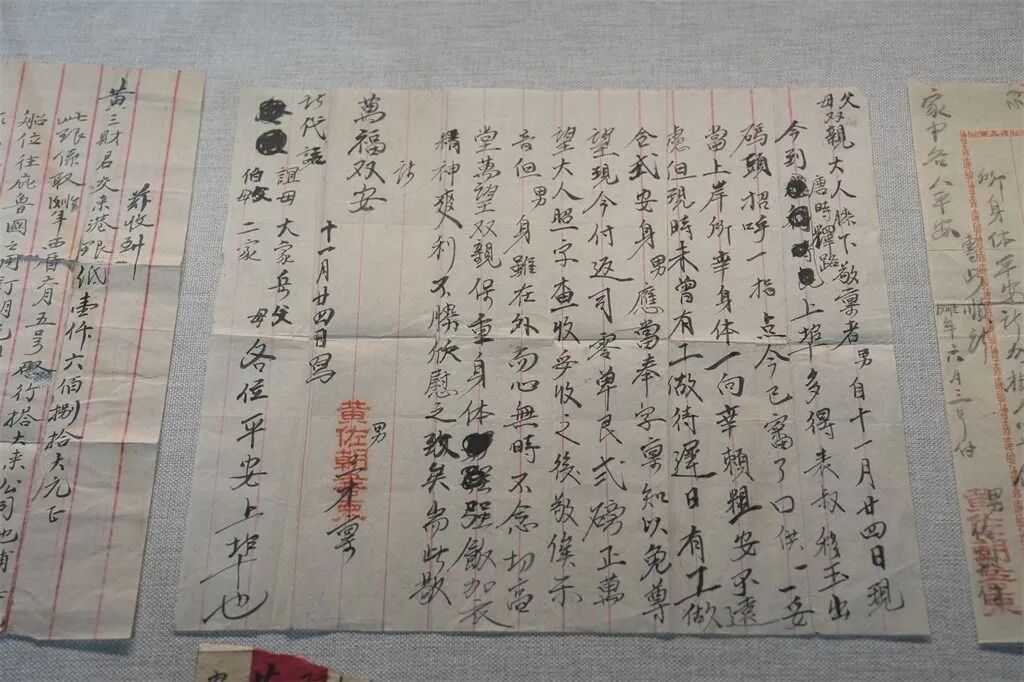 家中各人平安
六月三号付
父母双親大人膝下敬稟者男自十一月廿四日現
今到唐時釋路上埠多得表叔移玉出
碼頭招呼一指点今已審了口供一一妥
當上岸所幸身体一向幸賴粗安不遠
慮但現時未曾有工做待遲日有工做
合式安身男應當奉字稟知以免尊
望現今付返司零單艮弍磅正萬
望大人照字查收妥收之後敬俟示
音但男身雖在外而心無時不念切高
堂萬望双親保重身体强飯加衣
精神爽利不勝欣慰之致矣耑此敬
萬福双安
男
黃佐朝
稟
十一月廿四日寫
代請
祖母大家岳父母各位平安上埠也
伯二家
茲收到
黃三財君交来港銀纸壹仟六佰捌拾大元正
此銀係取年西曆六月五号行搭大来公司
船位往庇魯國之用訂明